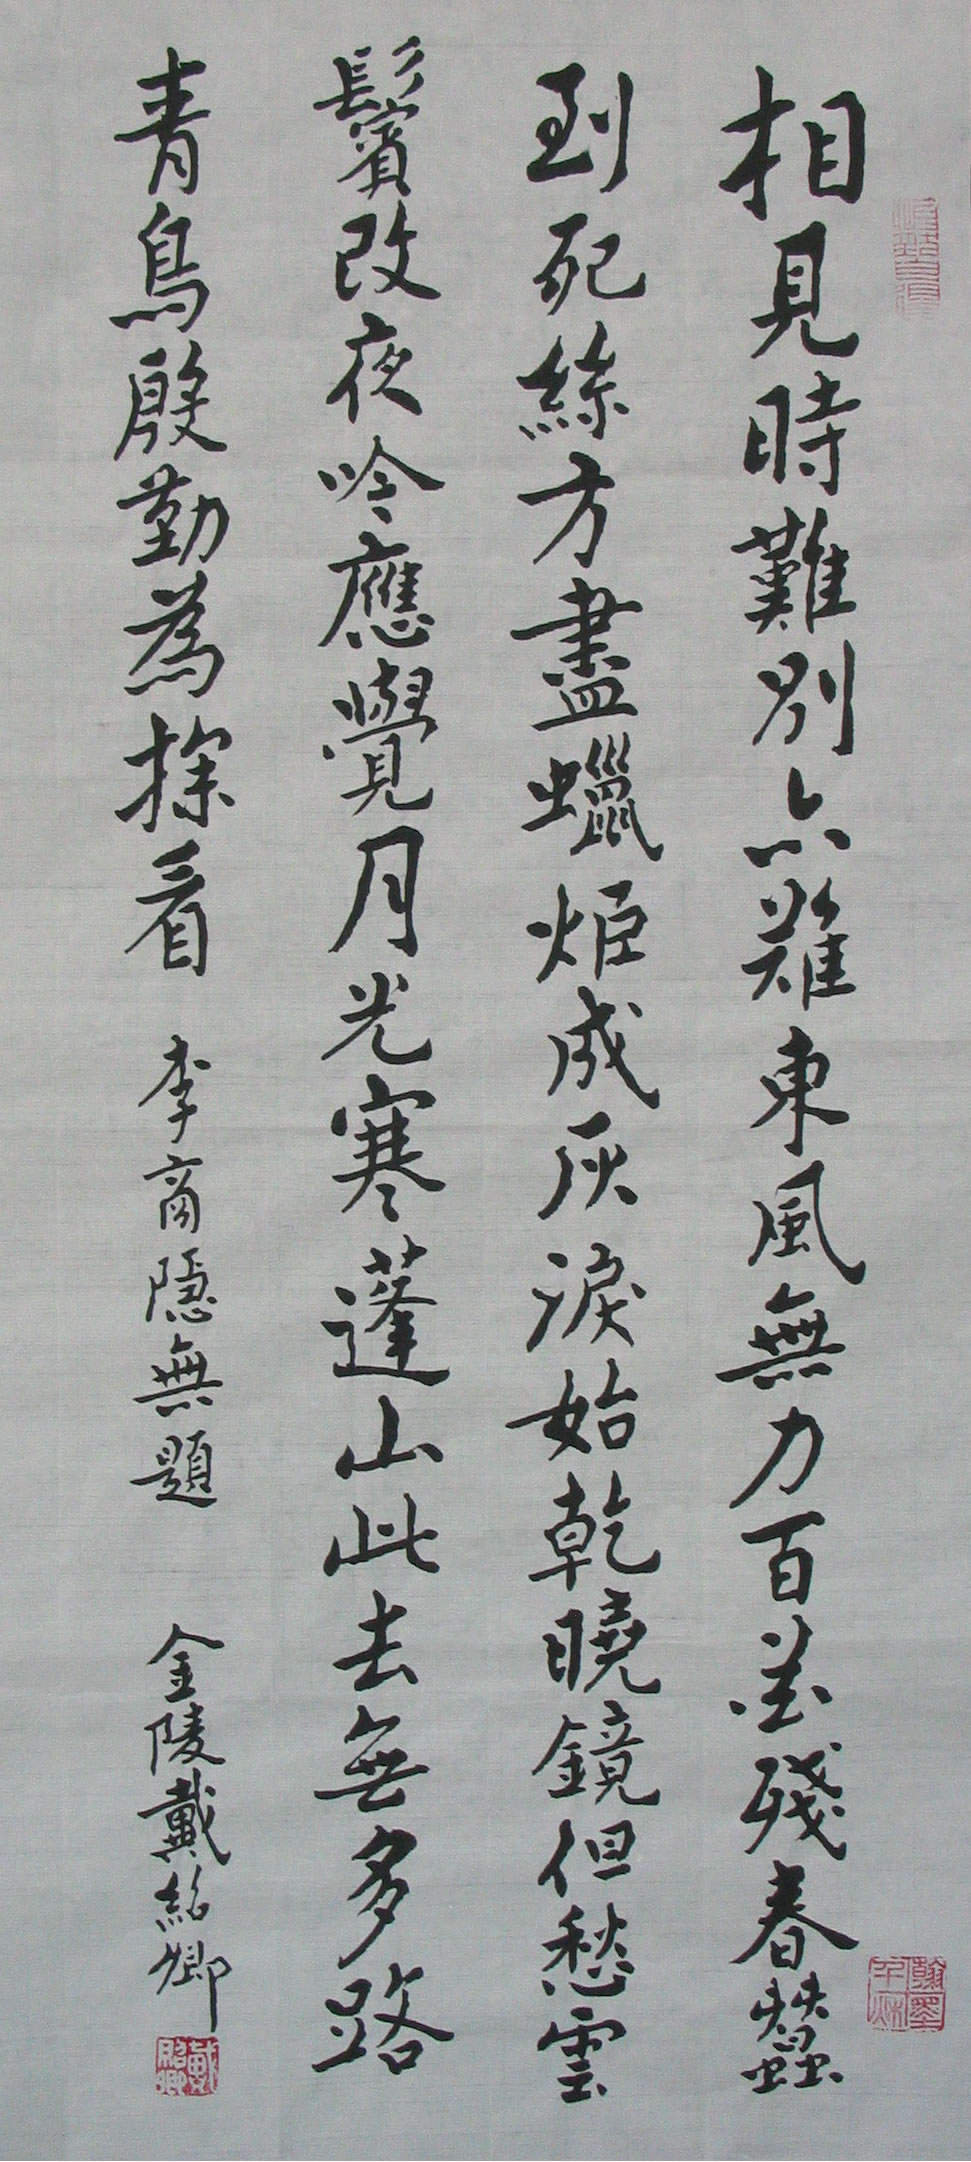 相見時難別亦難東風無力百花殘春蠶
到死絲方盡蠟炬成灰淚始乾曉鏡但愁雲
鬢改夜吟應覺月光寒蓬山此去無多路
青鳥殷勤為探看 李商隱無題 金陵戴紹卿
翰墨千秋
戴紹卿